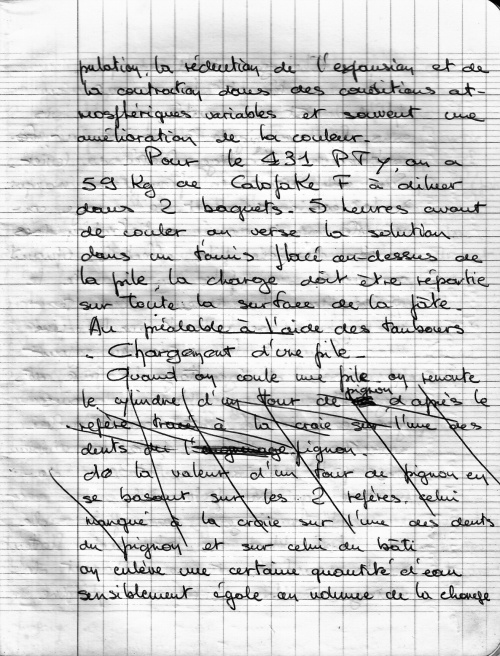 pulation, la réduction de l'expansion et de
la contraction dans des conditions at-
mosphériques variables et souvent une
amélioration de la couleur.
Pour le 431 PTy, on a
59 Kg de Calofake F à diluer
dans 2 baquets. 5 heures avant
de couler on verse la solution
dans un tamis placé au-dessus de
la pile, la charge doit être répartie
sur toute la surface de la pâte.
Au préalable à l'aide des tambours
. Chargement d'une pile.
Quand on coule une pile on remonte
le cylindre d'un tour de pignon d'après le
repère tracé à la craie sur l'une des
dents du pignon.
de la valeur d'un tour de pignon en
se basant sur les 2 repères, celui
marqué à la craie sur l'une des dents
du pignon et sur celui du bâti
on enlève une certaine quantité d'eau
sensiblement égale au volume de la charge